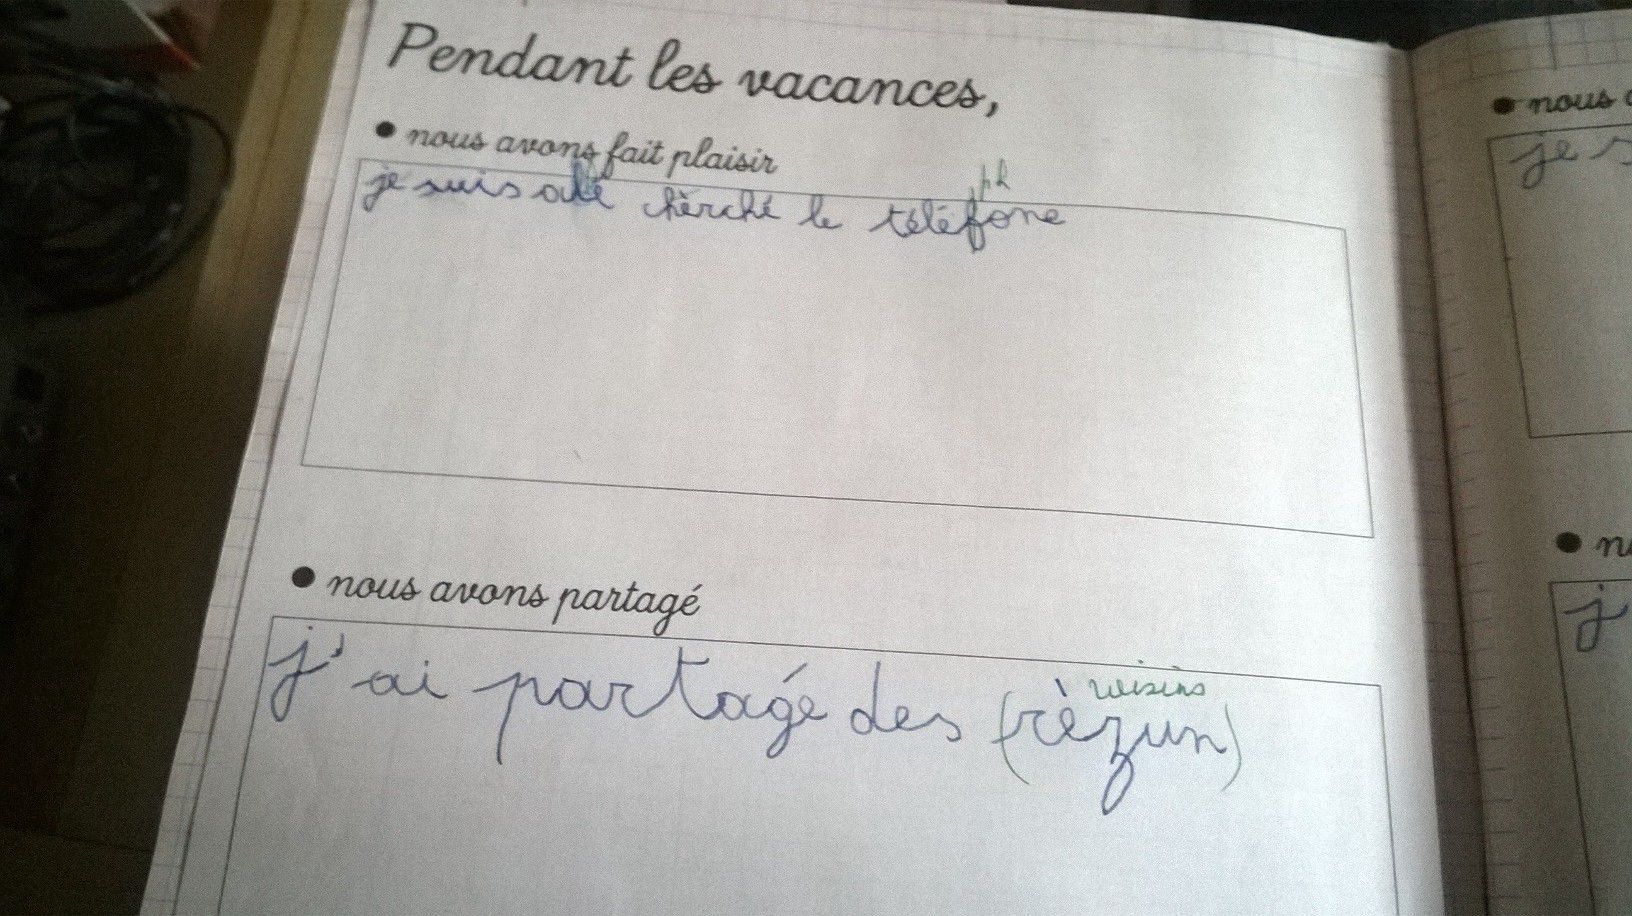 Pendant les vacances,
• nous avons fait plaisir
ph
je suis alé chèrché le téléfone
• nous avons partagé
raisins
j'ai partagé des (rèzun)
• nous
je s
j